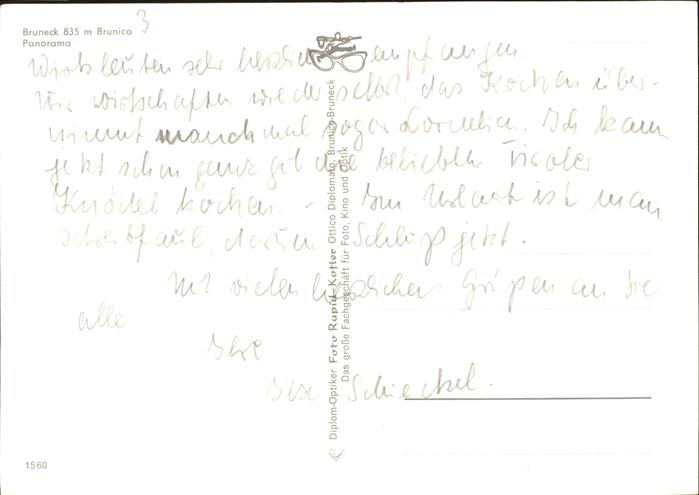 Bruneck 835 m Brunico
Panorama
3
Wirtsleuten sehr herzlich empfangen.
Wir wirtschaften wieder selbst, das Kochen über-
nimmt manchmal sogar Cornelia. Ich kann
jetzt schon ganz gut die beliebten Tiroler
Knödel kochen. – Im Urlaub ist man
schreibfaul, darum Schluß jetzt.
Mit vielen herzlichen Grüßen an Sie
alle
Ihre
Schieckel.
Diplom-Optiker Foto Rapid Kofler Ottico Diplomato, Brunico-Bruneck
Das große Fachgeschäft für Foto, Kino und Optik
1560